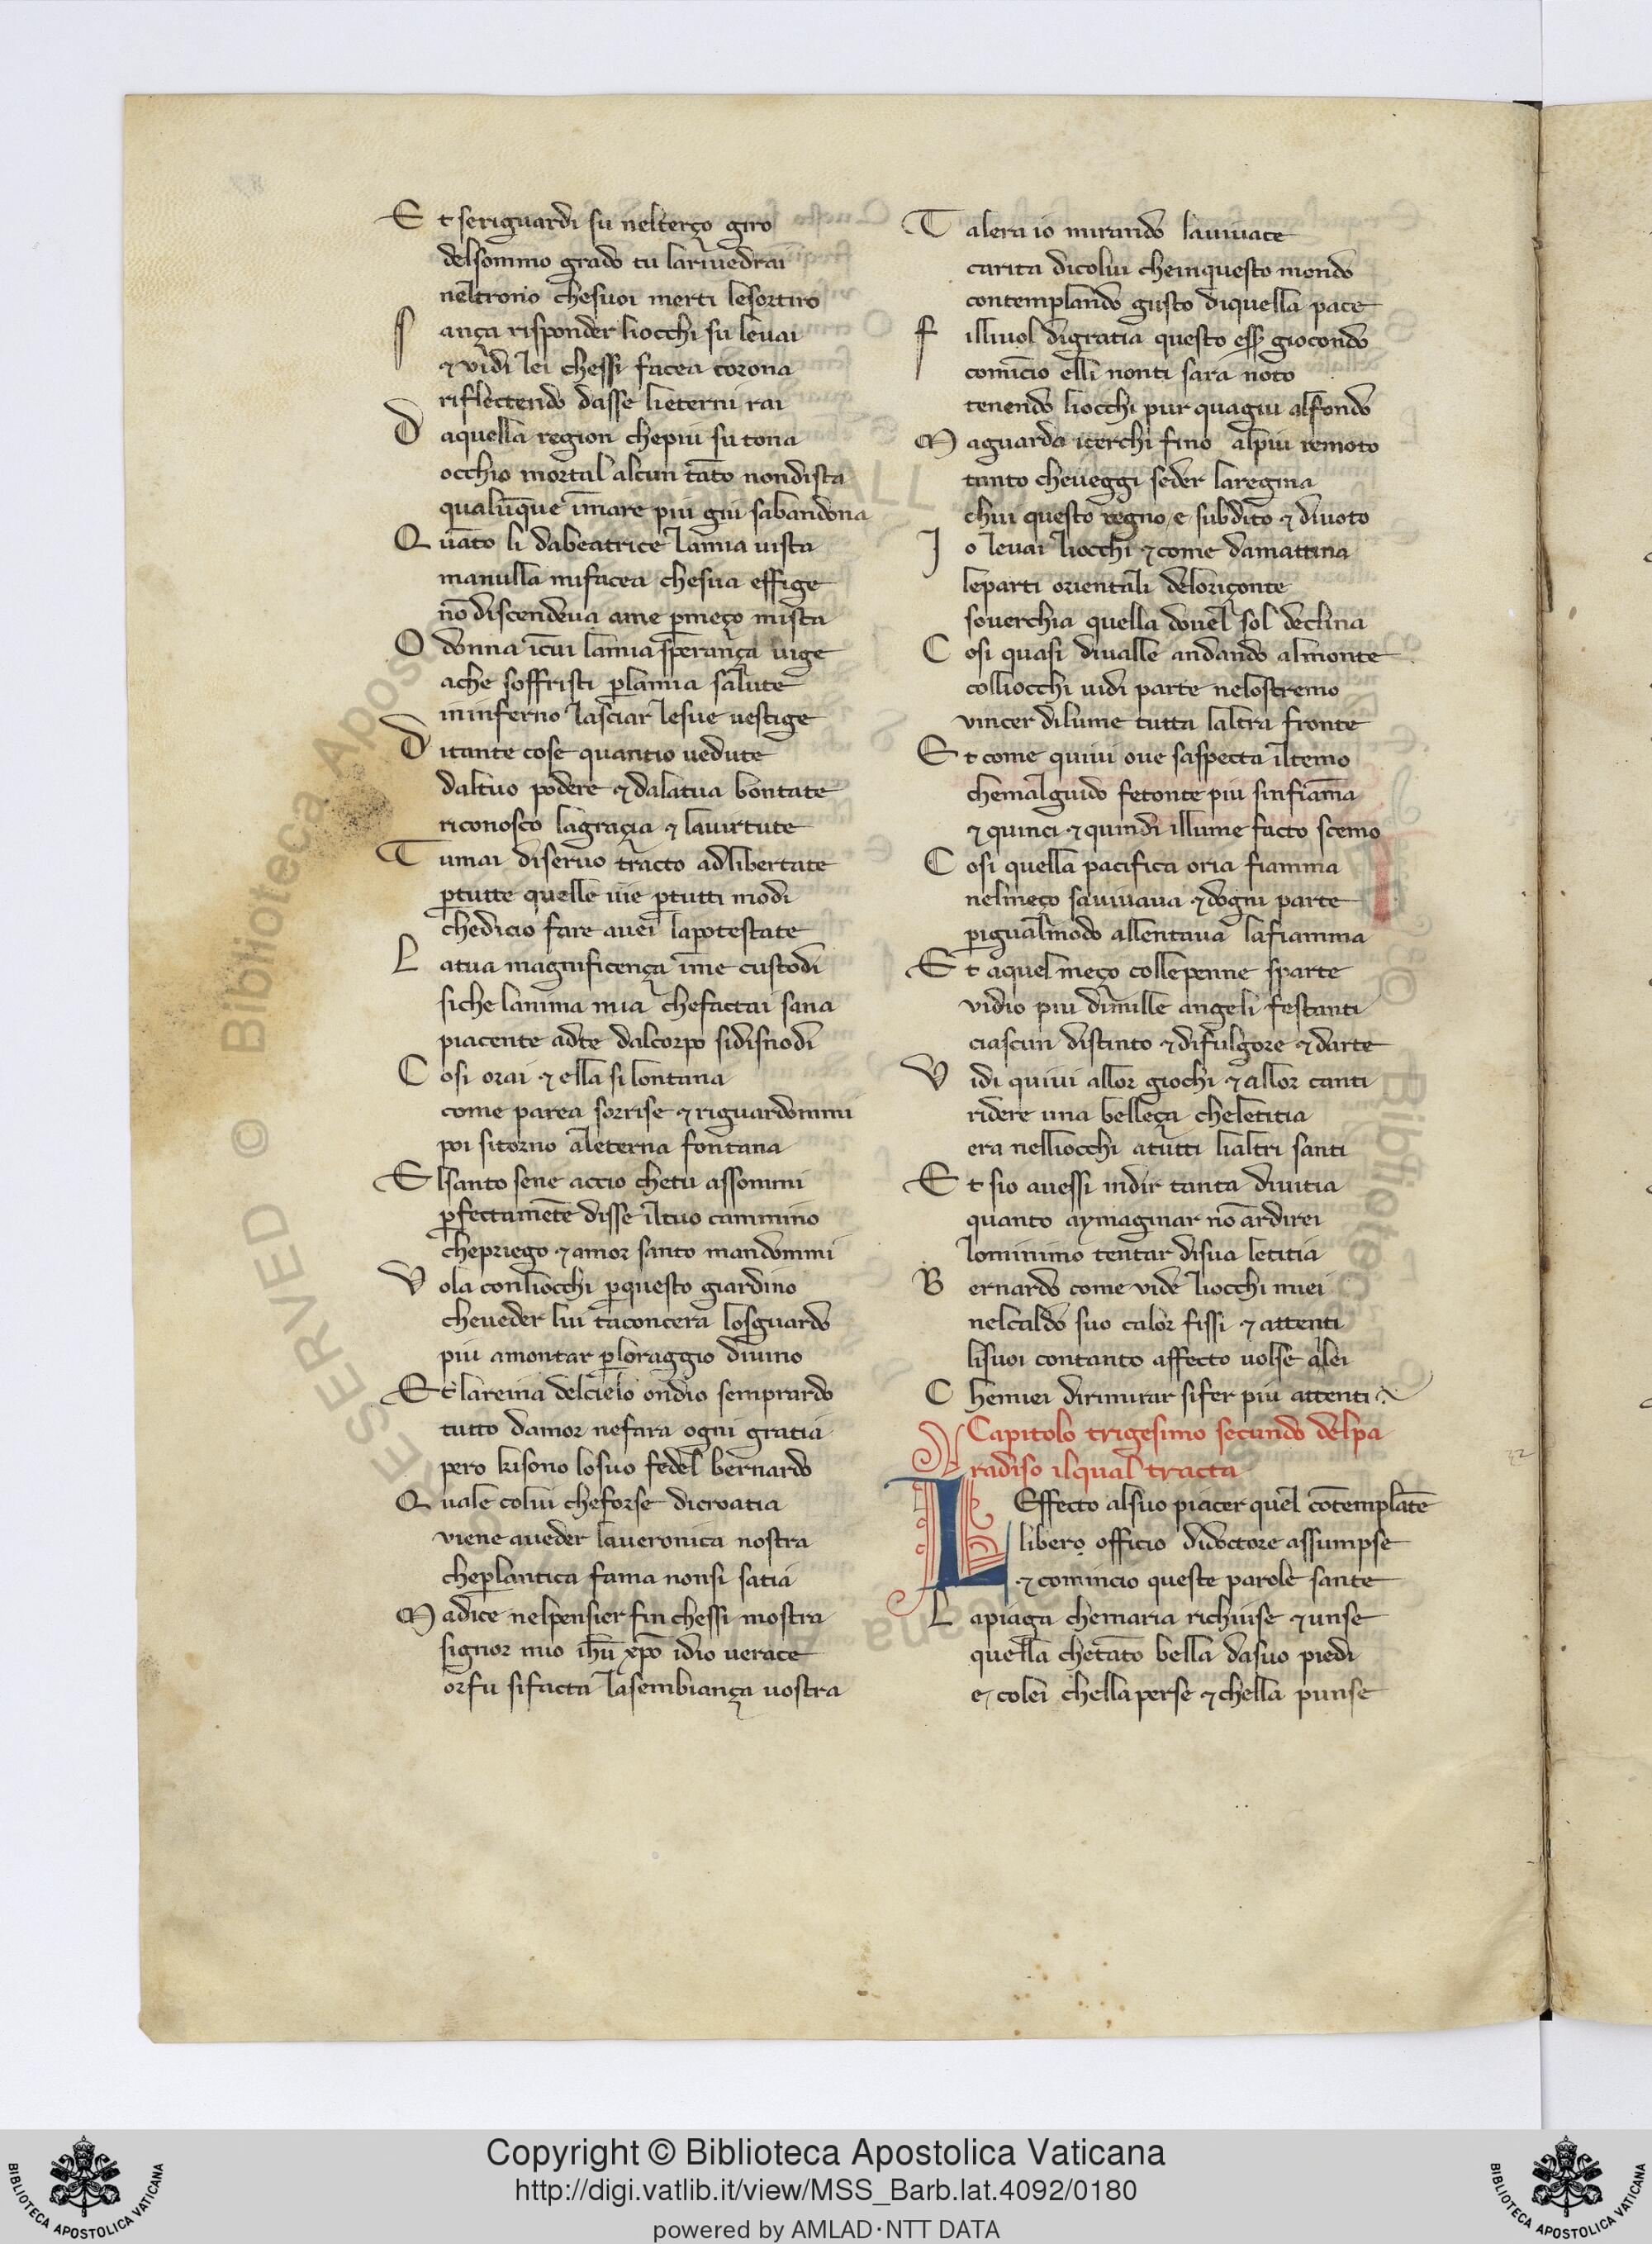 Et seriguardi su nelterço giro
delsommo grado tu lariuedrai
neltrono chesuoi merti lesortiro
Sança risponder liocchi su leuai
⁊ vidi lei chessi facea corona
riflectendo dasse lieterni rai
Daquella region chepiu su tona
occhio mortal alcun tāto nondista
qualūque īmare piu giu sabandona
Quāto li dabeatrice lamia uista
manulla mifacea chesua effige
nō discendeua ame ꝑmeço mista
O donna īcui lamia sperança uige
⁊che soffristi ꝑlamia salute
ininferno lasciar lesue uestige
Ditante cose quantio uedute
daltuo podere ⁊ dalatua bontate
riconosco lagraçia ⁊ lauirtute
Tumai diseruo tracto adlibertate
ꝑtutte quelle uie ꝑtutti modi
chedicio fare auei lapotestate
Latua magnificença īme custodi
siche lanima mia chefactai sana
piacente adte dalcorpo sidisnodi
Cosi orai ⁊ ella si lontana
come parea sorrise ⁊ riguardommi
poi sitorno aleterna fontana
Elsanto sene accio chetu assommi
ꝑfectamēte disse iltuo cammino
chepriego ⁊ amor santo mandommi
Vola conliocchi ꝑquesto giardino
cheueder lui taconcera losguardo
piu amontar ꝑloraggio diuino
Et lareina delcielo ondio semprardo
tutto damor nefara ogni gratia
pero kisono losuo fedel bernardo
Quale colui cheforse dicroatia
viene aueder laueronica nostra
cheꝑlantica fama nonsi satia
Madice nelpensier fin chessi mostra
signor mio ihū xp̄o idio uerace
orfu sifacta lasembiança uostra
Talera io mirando lauiuace
carita dicolui cheinquesto mondo
contemplando gusto diquella pace
Filliuol digratia questo ess̄ giocondo
comīcio elli nonti sara noto
tenendo liocchi pur quagiu alfondo
Maguarda icerchi fino alpiu remoto
tanto cheueggi seder laregina
chui questo regno e subdito ⁊ diuoto
Io leuai liocchi ⁊ come damattina
leparti orientali deloriçonte
souerchia quella douel sol declina
Cosi quasi diualle andando almonte
colliocchi uidi parte nelostremo
vincer dilume tutta laltra fronte
Et come quiui oue saspecta iltemo
chemalguido fetonte piu sinfiāma
⁊ quinci ⁊ quindi illume facto scemo
Cosi quella pacifica oria fiamma
nelmeço sauiuaua ⁊ dogni parte
ꝑigualmodo allentaua lafiamma
Et aquel meço collepenne sparte
vidio piu dimille angeli festanti
ciascun distinto ⁊ difulgore ⁊ darte
Vidi quiui allor giochi ⁊ allor canti
ridere una belleça cheletitia
era nelliocchi atutti lialtri santi
Et sio auessi indir tanta diuitia
quanto aymaginar nō ardirei
lominimo tentar disua letitia
Bernardo come vide liocchi miei
nelcaldo suo calor fissi ⁊ attenti
lisuoi contanto affecto uolse alei
Chemiei dirimirar sifer piu attenti
Capitolo trigesimo secundo delpa
radiso ilqual tracta
LEffecto alsuo piacer quel cōtemplāte
libero officio didoctore assumpse
⁊ comincio queste parole sante
Lapiaga chemaria richiuse ⁊ unse
quella chetāto bella dasuo piedi
e colei chellaperse ⁊ chella punse
32
Copyright © Biblioteca Apostolica Vaticana
http://digi.vatlib.it/view/MSS_Barb.lat.4092/0180
powered by AMLAD·NTT DATA
BIBLIOTECA APOSTOLICA VATICANA
BIBLIOTECA APOSTOLICA VATICANA